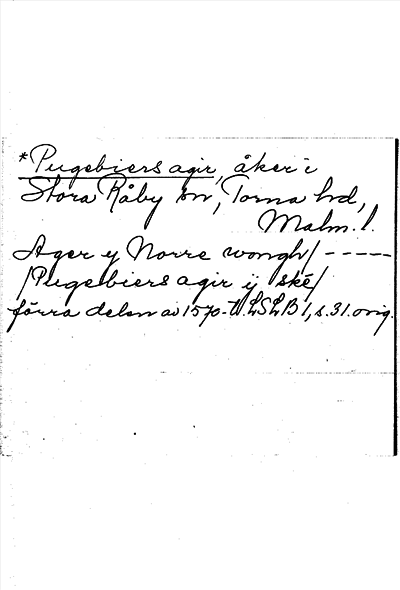 *Pugebiers agir, åker i
Stora Råby sn, Torna hd,
Malm. l.
Ager y Norre wongh/ -----
/Pugebiers agir ij ské/
förra delen av 1570-t. LSLB 1, s. 31. orig.